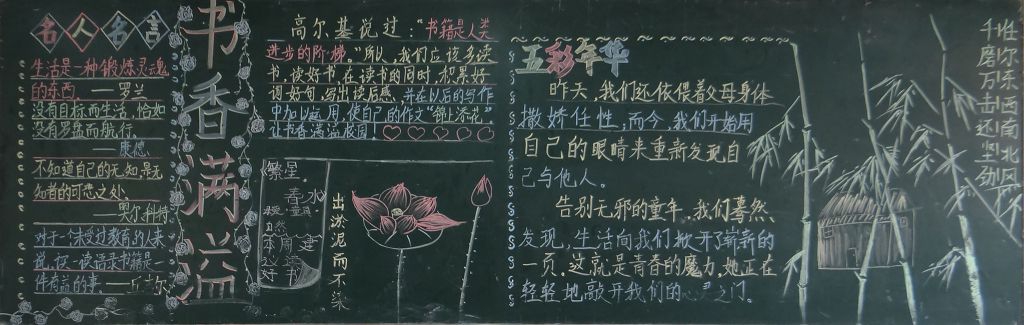 名人名言
生活是一种锻炼灵魂
的东西。——罗兰
没有目标而生活,恰如
没有罗盘而航行。
——康德
不知道自己的无知,是无
知者的可悲之处
——奥尔科特
对于一个未受过教育的人来
说,
书香满溢
高尔基说过:“书籍是人类
进步的阶梯”。所以,我们应该多读
书,读好书,在读书的同时,积累好
词好句,写出读后感,并在以后的写作
中加以运用,使自己的作文“锦上添花”
让书香满溢校园!
繁星。
春水
出淤泥而不染
五彩年华
昨天,我们还依偎着父母身体
撒娇任性;而今,我们开始用
自己的眼睛来重新发现自
己与他人。
告别无邪的童年,我们蓦然
发现,生活向我们掀开了崭新的
一页,这就是青春的魔力,她正在
轻轻地敲开我们的心灵之门。
千磨万击还坚劲
任尔东西南北风